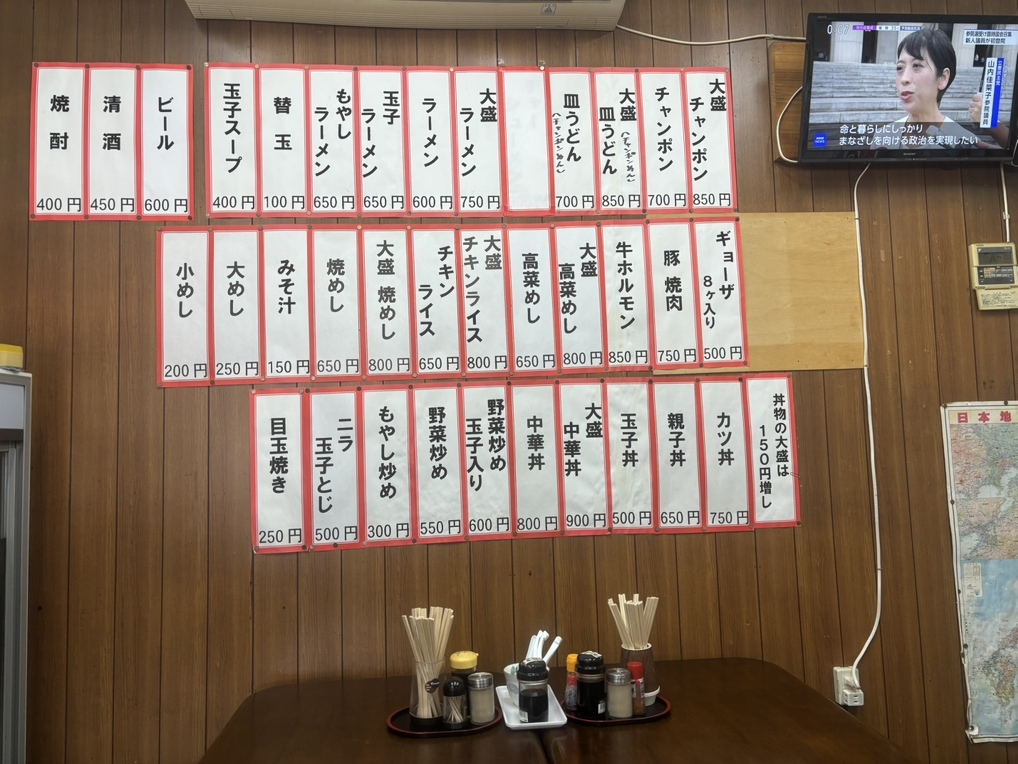 大盛 チャンポン 850円
チャンポン 700円
大盛 皿うどん (チャンポンめん) 850円
皿うどん (チャンポンめん) 700円
大盛 ラーメン 750円
ラーメン 600円
玉子 ラーメン 650円
もやし ラーメン 650円
替玉 100円
玉子スープ 400円
ビール 600円
清酒 450円
焼酎 400円
ギョーザ 8ヶ入り 500円
豚焼肉 750円
牛ホルモン 850円
大盛 高菜めし 800円
高菜めし 650円
大盛 チキンライス 800円
チキン ライス 650円
大盛 焼めし 800円
焼めし 650円
みそ汁 150円
大めし 250円
小めし 200円
丼物の大盛は 150円増し
カツ丼 750円
親子丼 650円
玉子丼 500円
大盛 中華丼 900円
中華丼 800円
野菜炒め 玉子入り 600円
野菜炒め 550円
もやし炒め 300円
ニラ 玉子とじ 500円
目玉焼き 250円
新人議員が初登院
山内佳菜子参院議員
命と暮らしにしっかり
まなざしを向ける政治を実現したい
NEWS
日本地